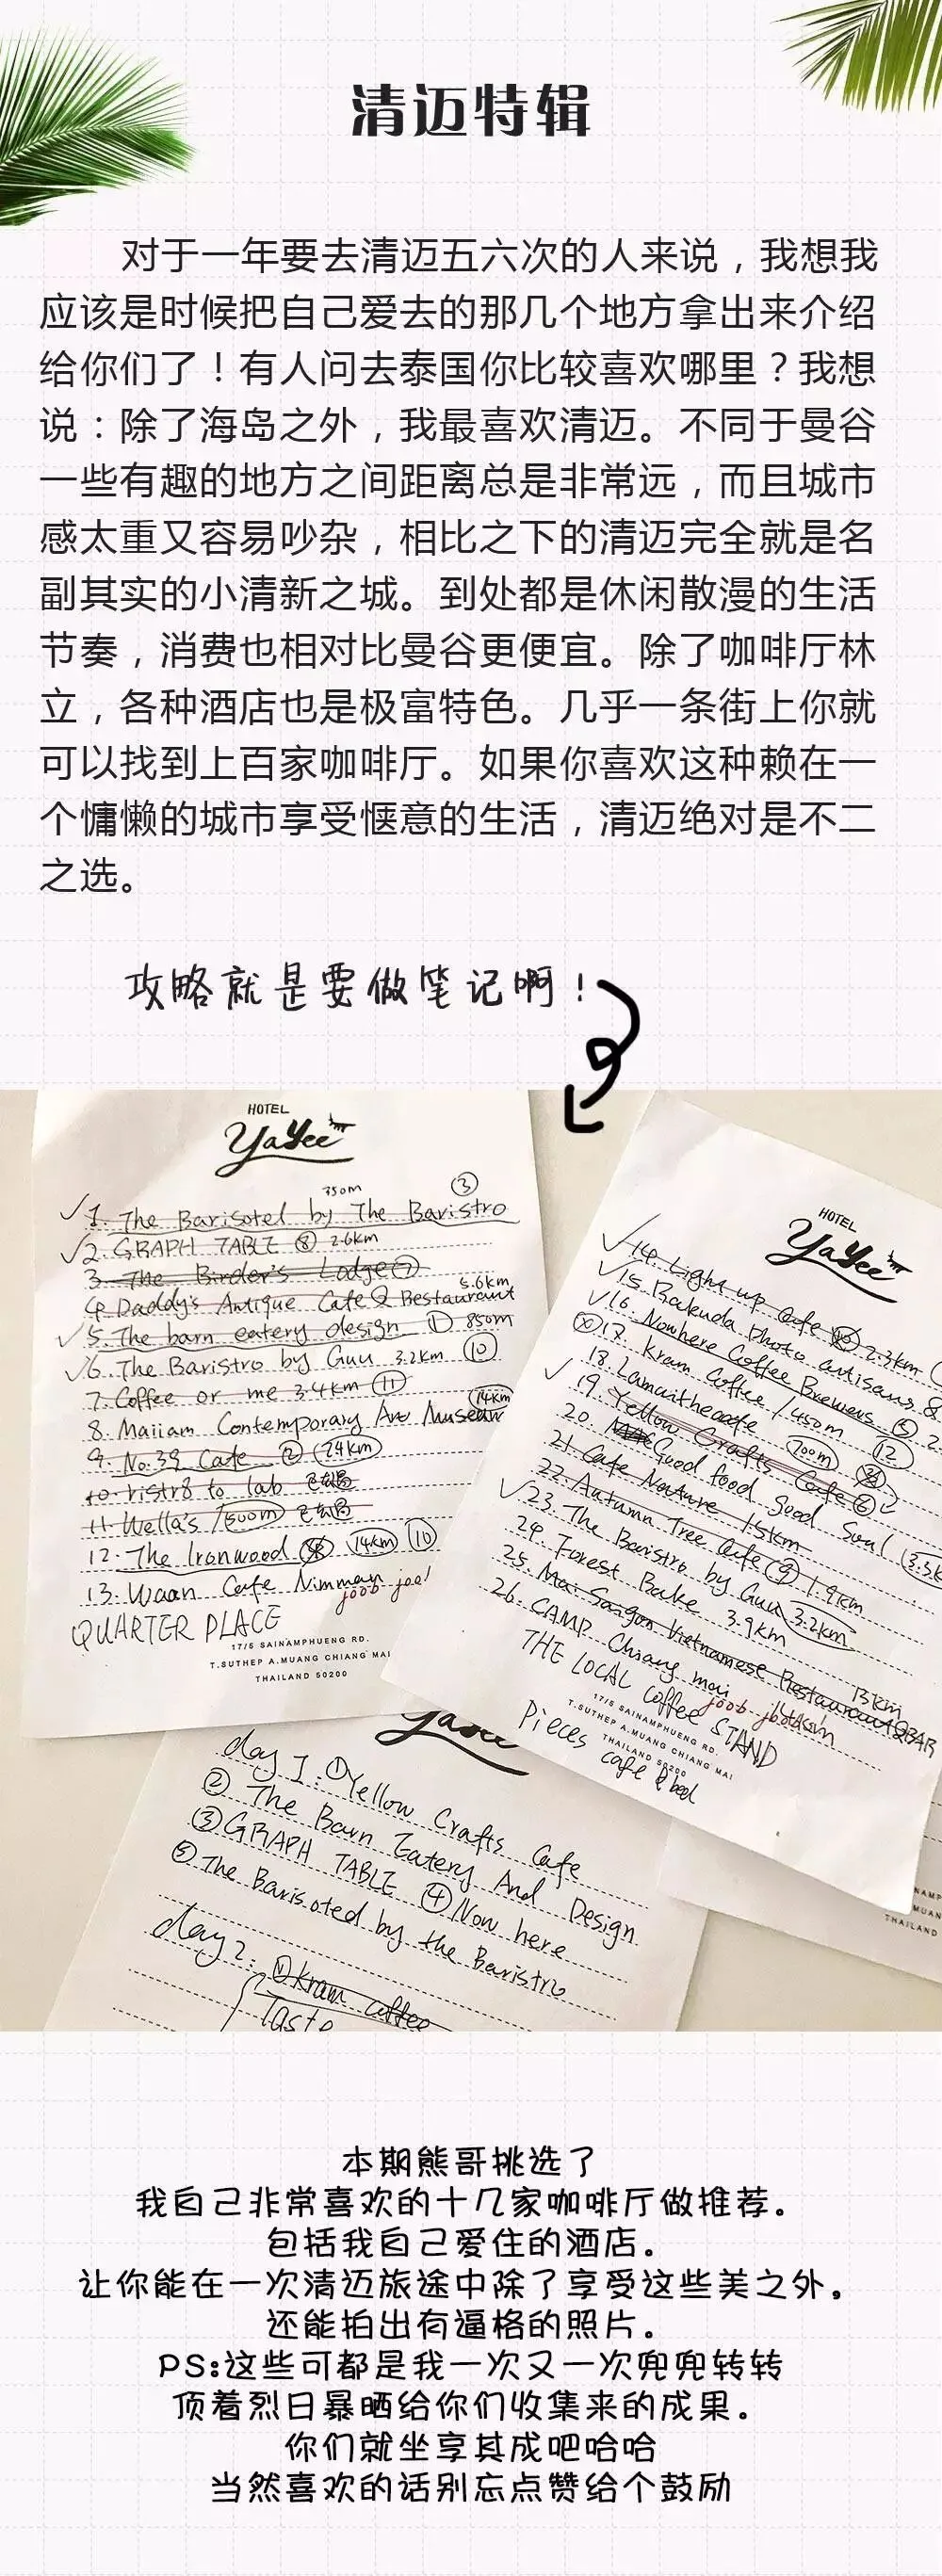 清迈特辑
对于一年要去清迈五六次的人来说，我想我
应该是时候把自己爱去的那几个地方拿出来介绍
给你们了！有人问去泰国你比较喜欢哪里？我想
说：除了海岛之外，我最喜欢清迈。不同于曼谷
一些有趣的地方之间距离总是非常远，而且城市
感太重又容易吵杂，相比之下的清迈完全就是名
副其实的小清新之城。到处都是休闲散漫的生活
节奏，消费也相对比曼谷更便宜。除了咖啡厅林
立，各种酒店也是极富特色。几乎一条街上你就
可以找到上百家咖啡厅。如果你喜欢这种赖在一
个慵懒的城市享受惬意的生活，清迈绝对是不二
之选。
攻略就是要做笔记啊！
HOTEL
YaYee
350m ③
1. The Barisotel by The Baristro
2. GRAPH TABLE ⑧ 2.6km
3. The Birder's Lodge ⑦
4. Daddy's Antique Cafe & Restaurant 5.6km
5. The barn eatery design ① 850m
6. The Baristro by Guu 3.2km ⑩
7. Coffee or me 3.4km ⑪
8. Maiiam Contemporary Art Museum 14km
9. No.39 Cafe ② 24km
10. ristr8 to lab
11. Wella's /500m
12. The Ironwood 14km ⑩
13. Waan Cafe Nimman
joob joe!
QUARTER PLACE
17/5 SAINAMPHUENG RD.
T.SUTHEP A.MUANG CHIANG MAI
THAILAND 50200
HOTEL
YaYee
14. Light up Cafe 2.3km
15. Bakuda Photo artisans &
16. Nowhere Coffee Brewers ⑤
17. Kram Coffee /450m ⑫
18. Lamaithecafe 700m
19. Yellow Crafts Cafe ⑥
20. Good food Good Soul 3.5k
21. Cafe Nature 1.5km
22. Autumn Tree Cafe ⑨ 1.9km
23. The Baristro by Guu 3.2km
24. Forest Bake 3.9km
25. Mai Saigon Vietnamese Restaurant &BAR 13km
26. CAMP Chiang mai
THE LOCAL coffee STAND
17/5 SAINAMPHUENG RD.
T.SUTHEP A.MUANG CHIANG MAI
THAILAND 50200
Pieces cafe & bed
YaYee
day 1: ①Yellow Crafts Cafe
② The Barn Eatery And Design
③GRAPH TABLE ④Now here
⑤ The Barisoted by the Baristro
day 2: ①kram coffee
Taste
NAMP
MUAN
THAILAND
本期熊哥挑选了
我自己非常喜欢的十几家咖啡厅做推荐。
包括我自己爱住的酒店。
让你能在一次清迈旅途中除了享受这些美之外，
还能拍出有逼格的照片。
PS:这些可都是我一次又一次兜兜转转
顶着烈日暴晒给你们收集来的成果。
你们就坐享其成吧哈哈
当然喜欢的话别忘点赞给个鼓励